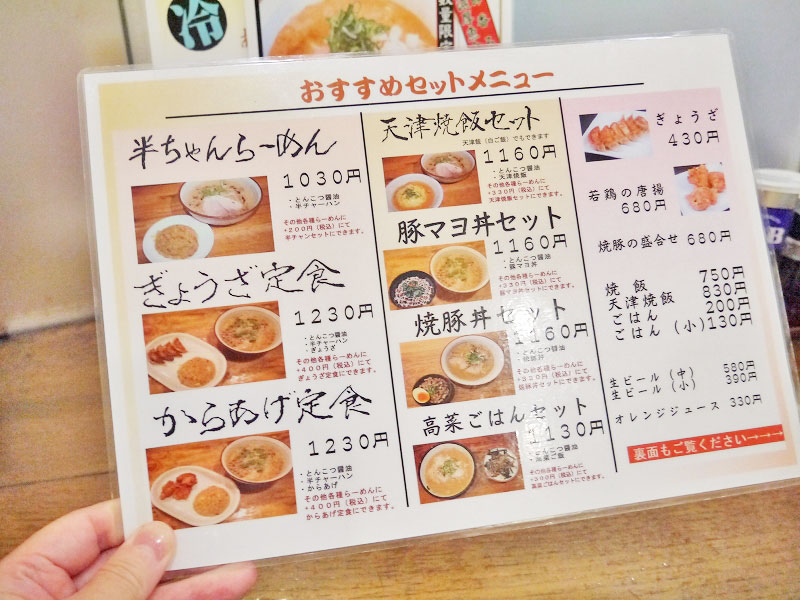 冷
数量限定
おすすめセットメニュー
半ちゃんらーめん
1030円
・とんこつ醤油
・半チャーハン
その他各種らーめんに
+200円(税込)にて
半チャンセットにできます。
ぎょうざ定食
1230円
・とんこつ醤油
・半チャーハン
・ぎょうざ
その他各種らーめんに
+400円(税込)にて
ぎょうざ定食にできます。
からあげ定食
1230円
・とんこつ醤油
・半チャーハン
・からあげ
その他各種らーめんに
+400円(税込)にて
からあげ定食にできます。
天津焼飯セット
天津飯(白ご飯)でもできます
1160円
・とんこつ醤油
・天津焼飯
その他各種らーめんに
+330円(税込)にて
天津焼飯セットにできます。
豚マヨ丼セット
1160円
・とんこつ醤油
・豚マヨ丼
その他各種らーめんに
+330円(税込)にて
豚マヨ丼セットにできます。
焼豚丼セット
1160円
・とんこつ醤油
・焼豚丼
その他各種らーめんに
+330円(税込)にて
焼豚丼セットにできます。
高菜ごはんセット
1130円
・とんこつ醤油
・高菜ご飯
その他各種らーめんに
+300円(税込)にて
高菜ごはんセットにできます。
ぎょうざ
430円
若鶏の唐揚
680円
焼豚の盛合せ 680円
焼飯 750円
天津焼飯 830円
ごはん 200円
ごはん(小)130円
生ビール(中) 580円
生ビール(小) 390円
オレンジジュース 330円
裏面もご覧ください→→→